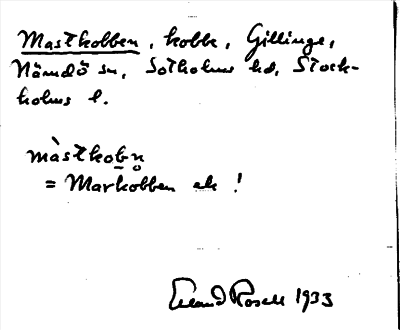 Mastkobben, kobbe, Gillinge,
Nämdö sn, Sotholms hd, Stock-
holms l.
màstkobn̥
= Markobben ek !
Erland Rosell 1933